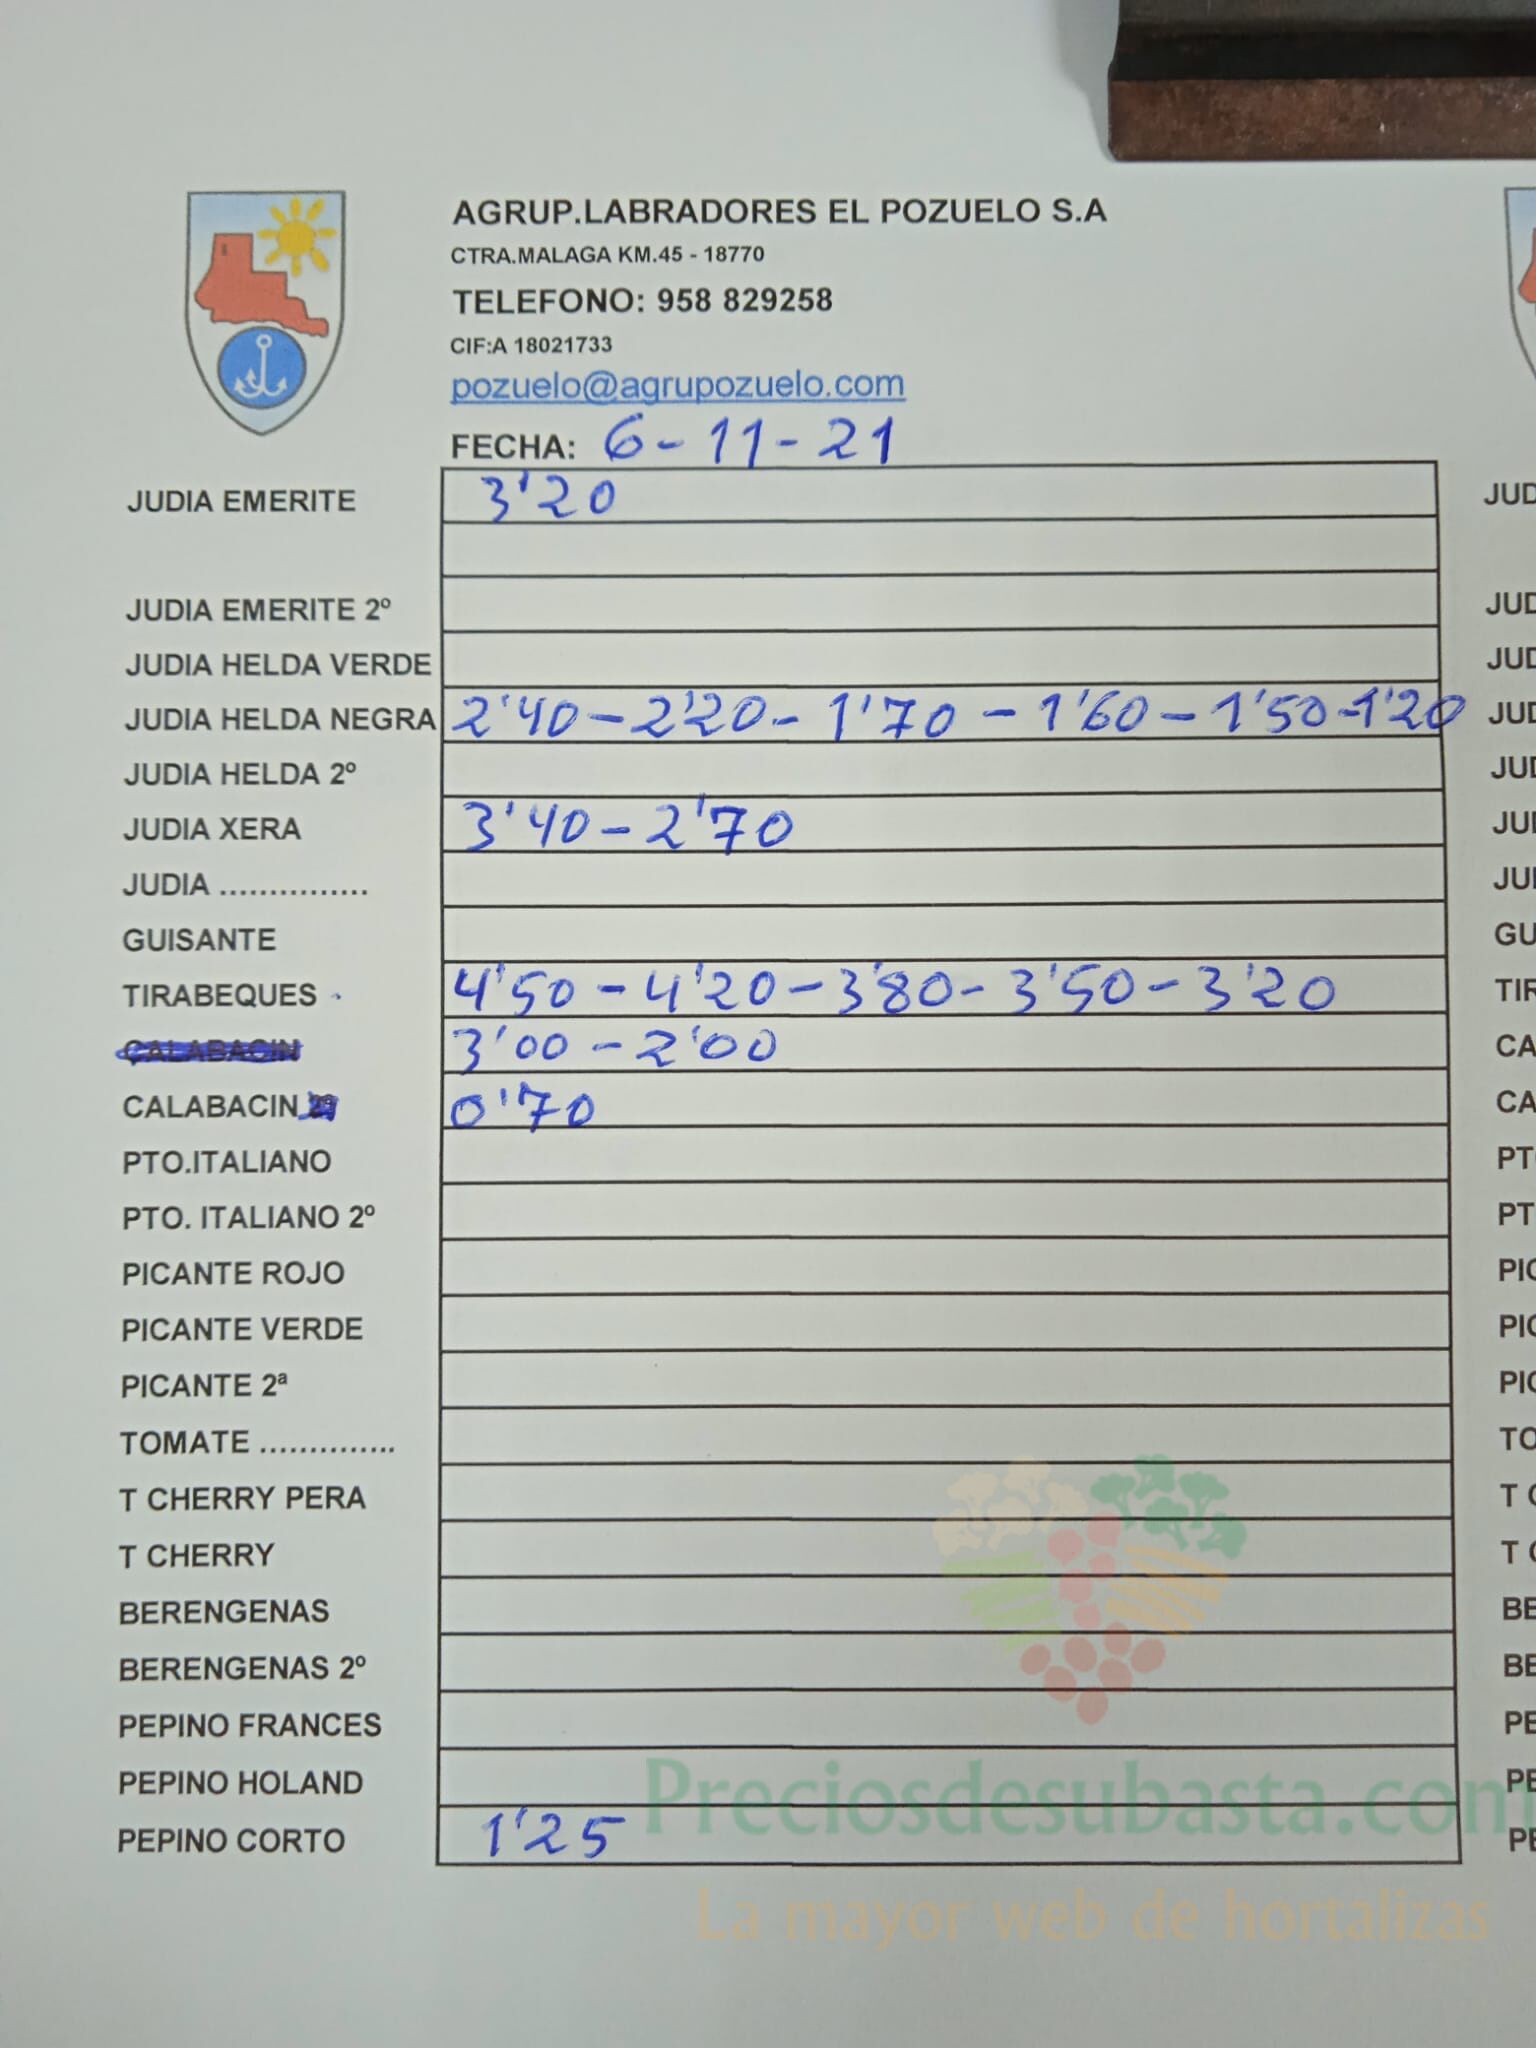 AGRUP.LABRADORES EL POZUELO S.A
CTRA.MALAGA KM.45 - 18770
TELEFONO: 958 829258
CIF:A 18021733
pozuelo@agrupozuelo.com
FECHA: 6-11-21
JUDIA EMERITE 3'20 JUD
JUDIA EMERITE 2º JUD
JUDIA HELDA VERDE JUD
JUDIA HELDA NEGRA 2'40-2'20-1'70-1'60-1'50-1'20 JUD
JUDIA HELDA 2º JUD
JUDIA XERA 3'40-2'70 JUD
JUDIA ............... JUD
GUISANTE GU
TIRABEQUES 4'50-4'20-3'80-3'50-3'20 TIR
CALABACIN 3'00-2'00 CA
CALABACIN 2º 0'70 CA
PTO.ITALIANO PT
PTO. ITALIANO 2º PT
PICANTE ROJO PIC
PICANTE VERDE PIC
PICANTE 2ª PIC
TOMATE .............. TO
T CHERRY PERA T C
T CHERRY T C
BERENGENAS BE
BERENGENAS 2º BE
PEPINO FRANCES PE
PEPINO HOLAND PE
Preciosdesubasta.com
PEPINO CORTO 1'25 PE
La mayor web de hortalizas